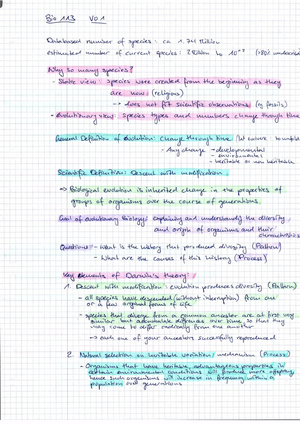 Bio 113 V01
Databased number of species: ca 1.74 Million
estimated number of current species: 2 Billion to
Why so many species?
- Static view: species were created from the beginning as they
are now (religious)
→ does not fit scientific observations (eg fossils)
- Evolutionary view: species types and numbers change through time
General Definition of Evolution: Change through time
- Any change → developmental
→ environmental
→ heritable or non heritable
Scientific Definition: Descent with modification
⇒ Biological evolution is inherited change in the properties of
groups of organisms over the course of generations.
Goal of evolutionary Biology: explaining and understanding the diversity
and origin of organisms and their
characteristics
Questions: - What is the history that produced diversity (Pattern)
- What are the causes of this history (Process)
Key Elements of Darwin's theory:
1. Descent with modification: evolution produces diversity (Pattern)
- all species have descended (without interruption) from one
or a few original forms of life.
- species that diverge from a common ancestor are at first very
similar but accumulate differences over time so that they
may come to differ radically from one another
→ each one of your ancestors successfully reproduced
2. Natural selection on heritable variation: mechanism (Process)
- Organisms that have heritable, advantageous properties in
certain environmental conditions will produce more offspring
hence such organisms will increase in frequency within a
population over generations